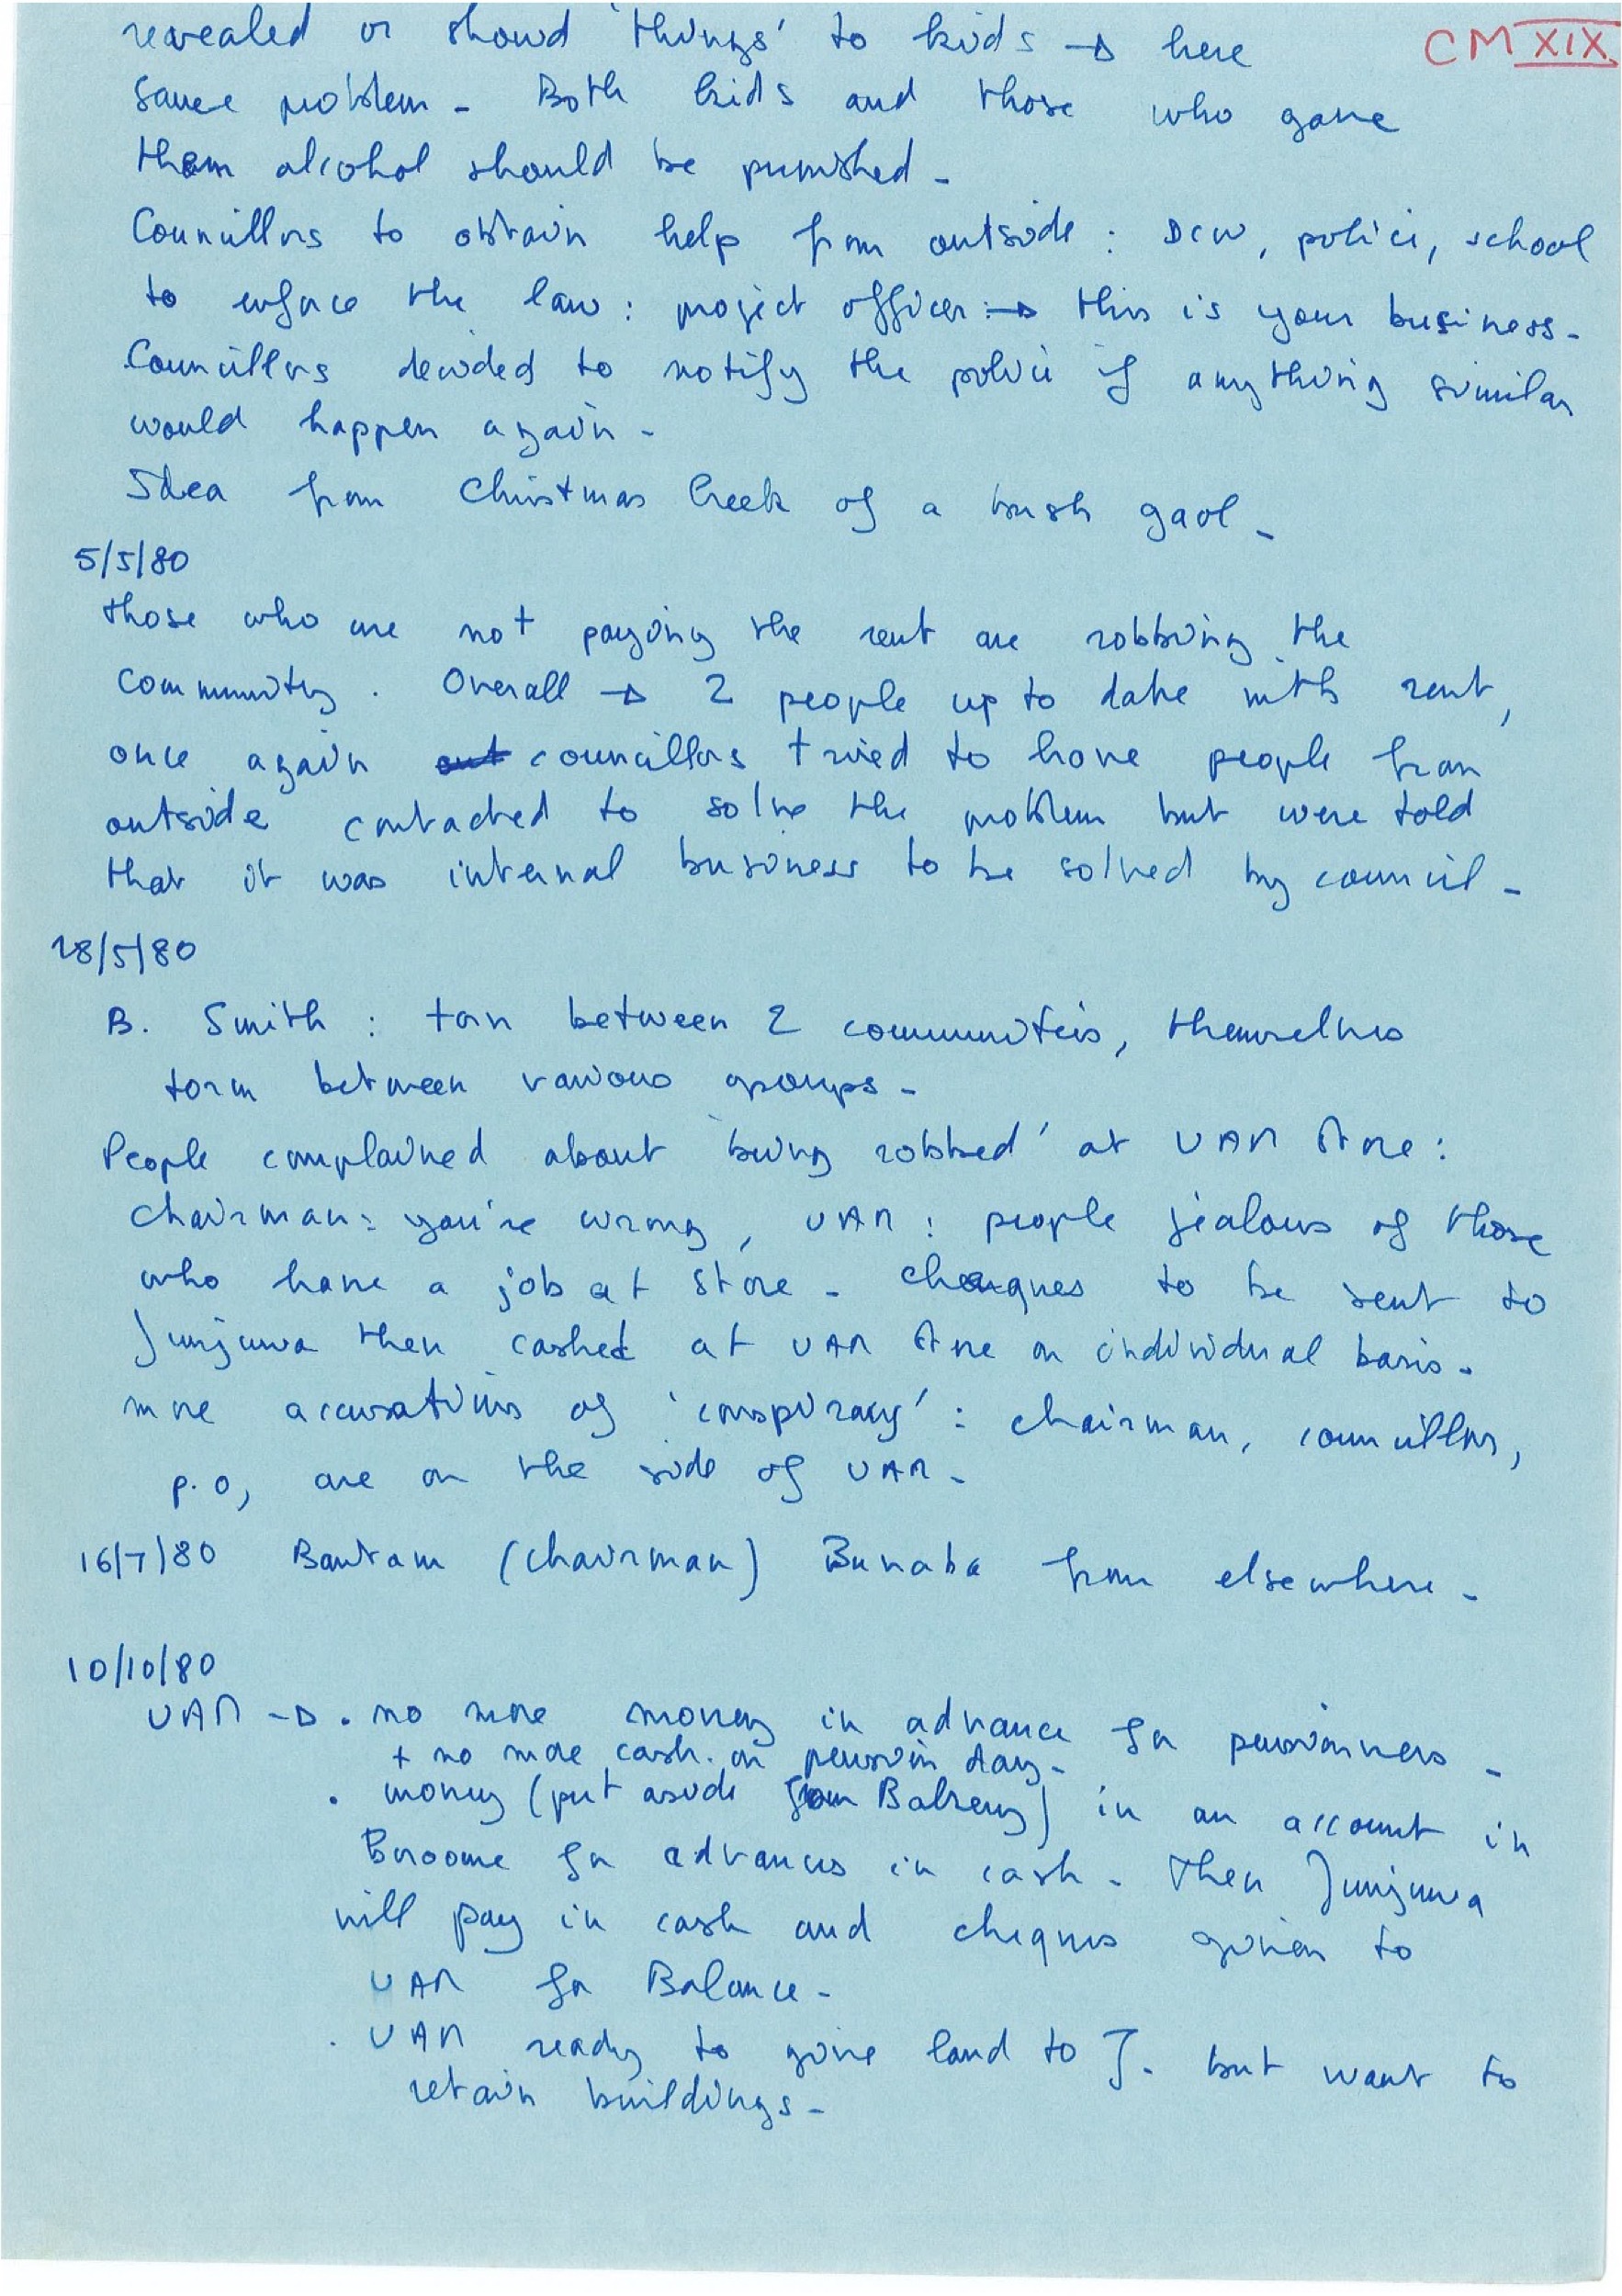 CM XIX
revealed or showd 'things' to kids → here
same problem - Both kids and those who gave
them alcohol should be punished -
Councillors to obtain help from outside : DCW, police, school
to enforce the law : project officer :→ this is your business -
Councillors decided to notify the police if anything similar
would happen again -
Idea from Christmas Creek of a bush gaol -
5/5/80
those who are not paying the rent are robbing the
community . Overall → 2 people up to date with rent,
once again out councillors tried to have people from
outside contacted to solve the problem but were told
that it was internal business to be solved by council -
28/5/80
B. Smith : torn between 2 communities, themselves
torn between various groups -
People complained about 'being robbed' at UAM store :
chairman : you're wrong, UAM : people jealous of those
who have a job at store - cheques to be sent to
Junjuwa then cashed at UAM store on individual basis -
more accusations of 'conspiracy' : chairman, councillors,
p.o, are on the side of UAM -
16/7/80 Bantam (chairman) Bunaba from elsewhere -
10/10/80
UAM → . no more money in advance for pensionners -
+ no more cash on pension day -
. money (put aside from Balzeny) in an account in
Broome for advances in cash - Then Junjuwa
will pay in cash and cheques given to
UAM for Balance -
. UAM ready to give land to J. but want to
retain buildings -